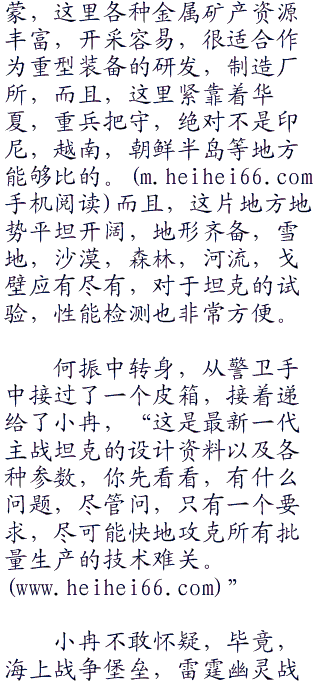 蒙，这里各种金属矿产资源
丰富，开采容易，很适合作
为重型装备的研发，制造厂
所，而且，这里紧靠着华
夏，重兵把守，绝对不是印
尼，越南，朝鲜半岛等地方
能够比的。(m.heihei66.com
手机阅读)而且，这片地方地
势平坦开阔，地形齐备，雪
地，沙漠，森林，河流，戈
壁应有尽有，对于坦克的试
验，性能检测也非常方便。
何振中转身，从警卫手
中接过了一个皮箱，接着递
给了小冉，“这是最新一代
主战坦克的设计资料以及各
种参数，你先看看，有什么
问题，尽管问，只有一个要
求，尽可能快地攻克所有批
量生产的技术难关。
(www.heihei66.com)”
小冉不敢怀疑，毕竟，
海上战争堡垒，雷霆幽灵战